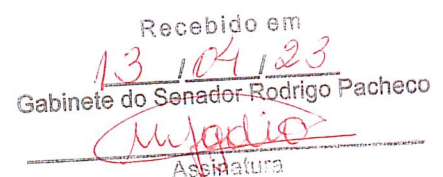 Recebido em
13 / 04 / 23
Gabinete do Senador Rodrigo Pacheco
Assinatura